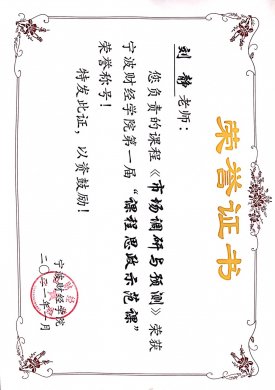 荣誉证书
刘静 老师：
您负责的课程《市场调研与预测》荣获
宁波财经学院第一届“课程思政示范课”
荣誉称号！
特发此证，以资鼓励！
宁波财经学院
二〇二一年 月